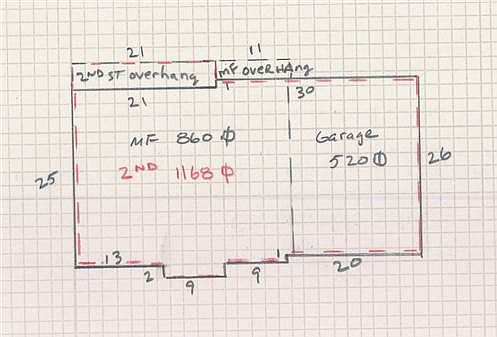 21 11
2ND ST overhang MF OVERHANG
21 1 30
MF 860 ⏀ Garage
2ND 1168 ⏀ 520 ⏀
25 26
13 2 9 9 1 20